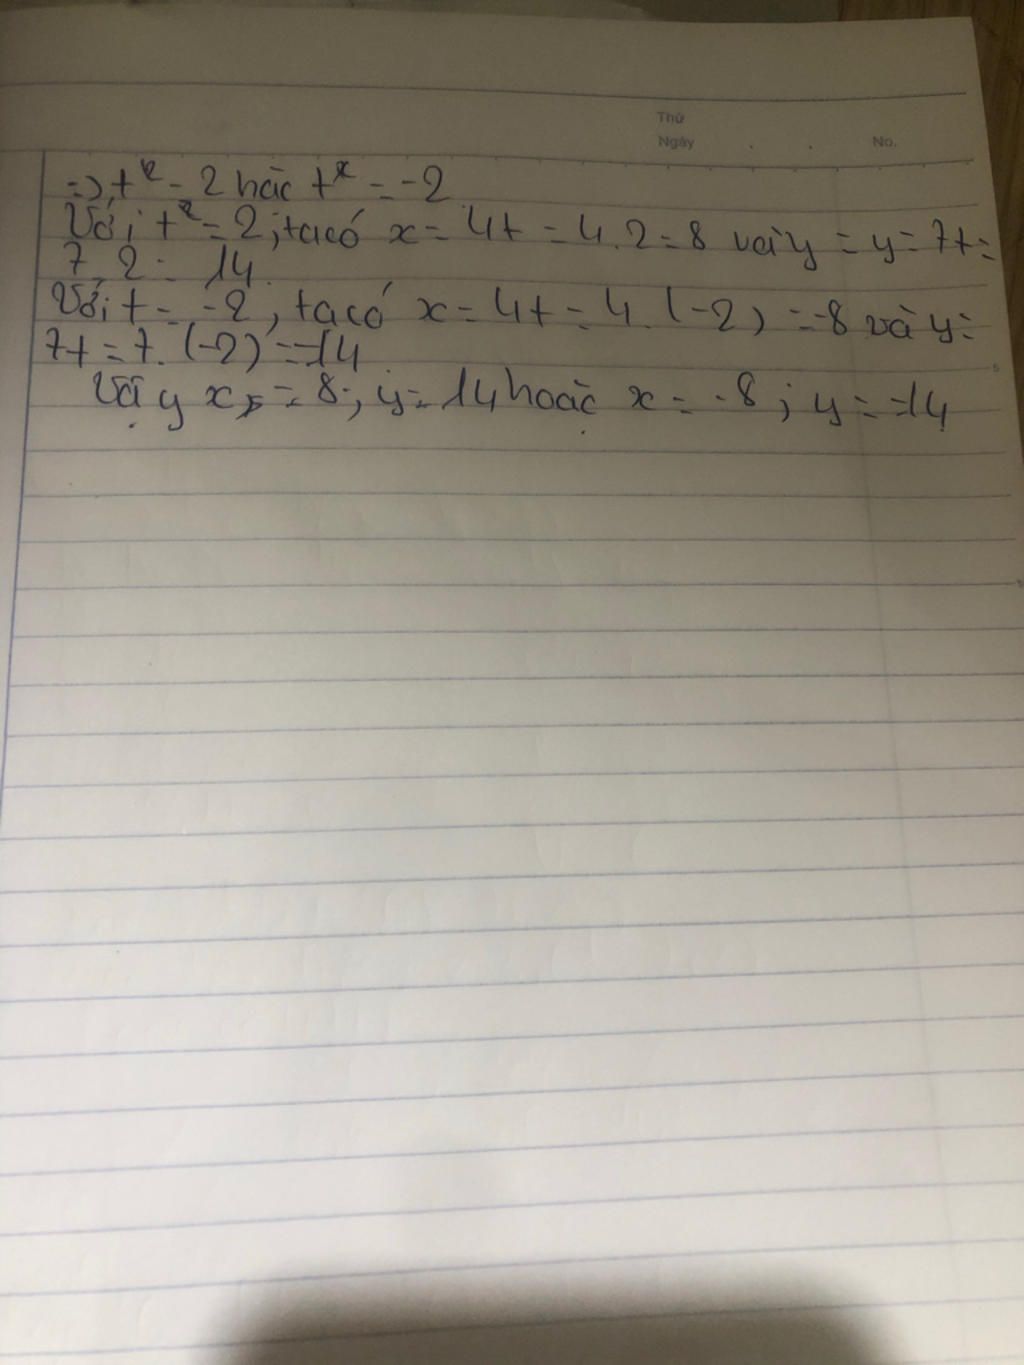 Thứ
Ngày . . No.
=> t² = 2 hăc t² = -2
Với t² = 2, ta có x = 4t = 4.2 = 8 và y = y = 7t =
7.2 = 14
Với t = -2, ta có x = 4t = 4.(-2) = -8 và y =
7t = 7.(-2) = -14
Vậy x = 8; y = 14 hoặc x = -8; y = -14